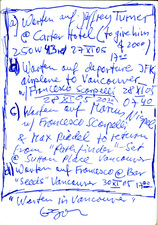 a) Warten auf Jeffrey Turner
@ Carter Hotel (to give him
250W 43rd 27 XI 05 $2000)
17 22
b) Warten auf departure JFK
airplane to Vancouver
w/ Francesco Scarpelli 28 XI 05
28 XI 05 07 40
c) Warten auf Marcus
w/ Francesco Scarpelli
& Max Riedel to return
from "Pathfinder" Set
@ Sutton Place Vancouver
d) Warten auf Francesco @ Bar
"Seeds" Vancouver 30 XI 05 17
"Warten in Vancouver"